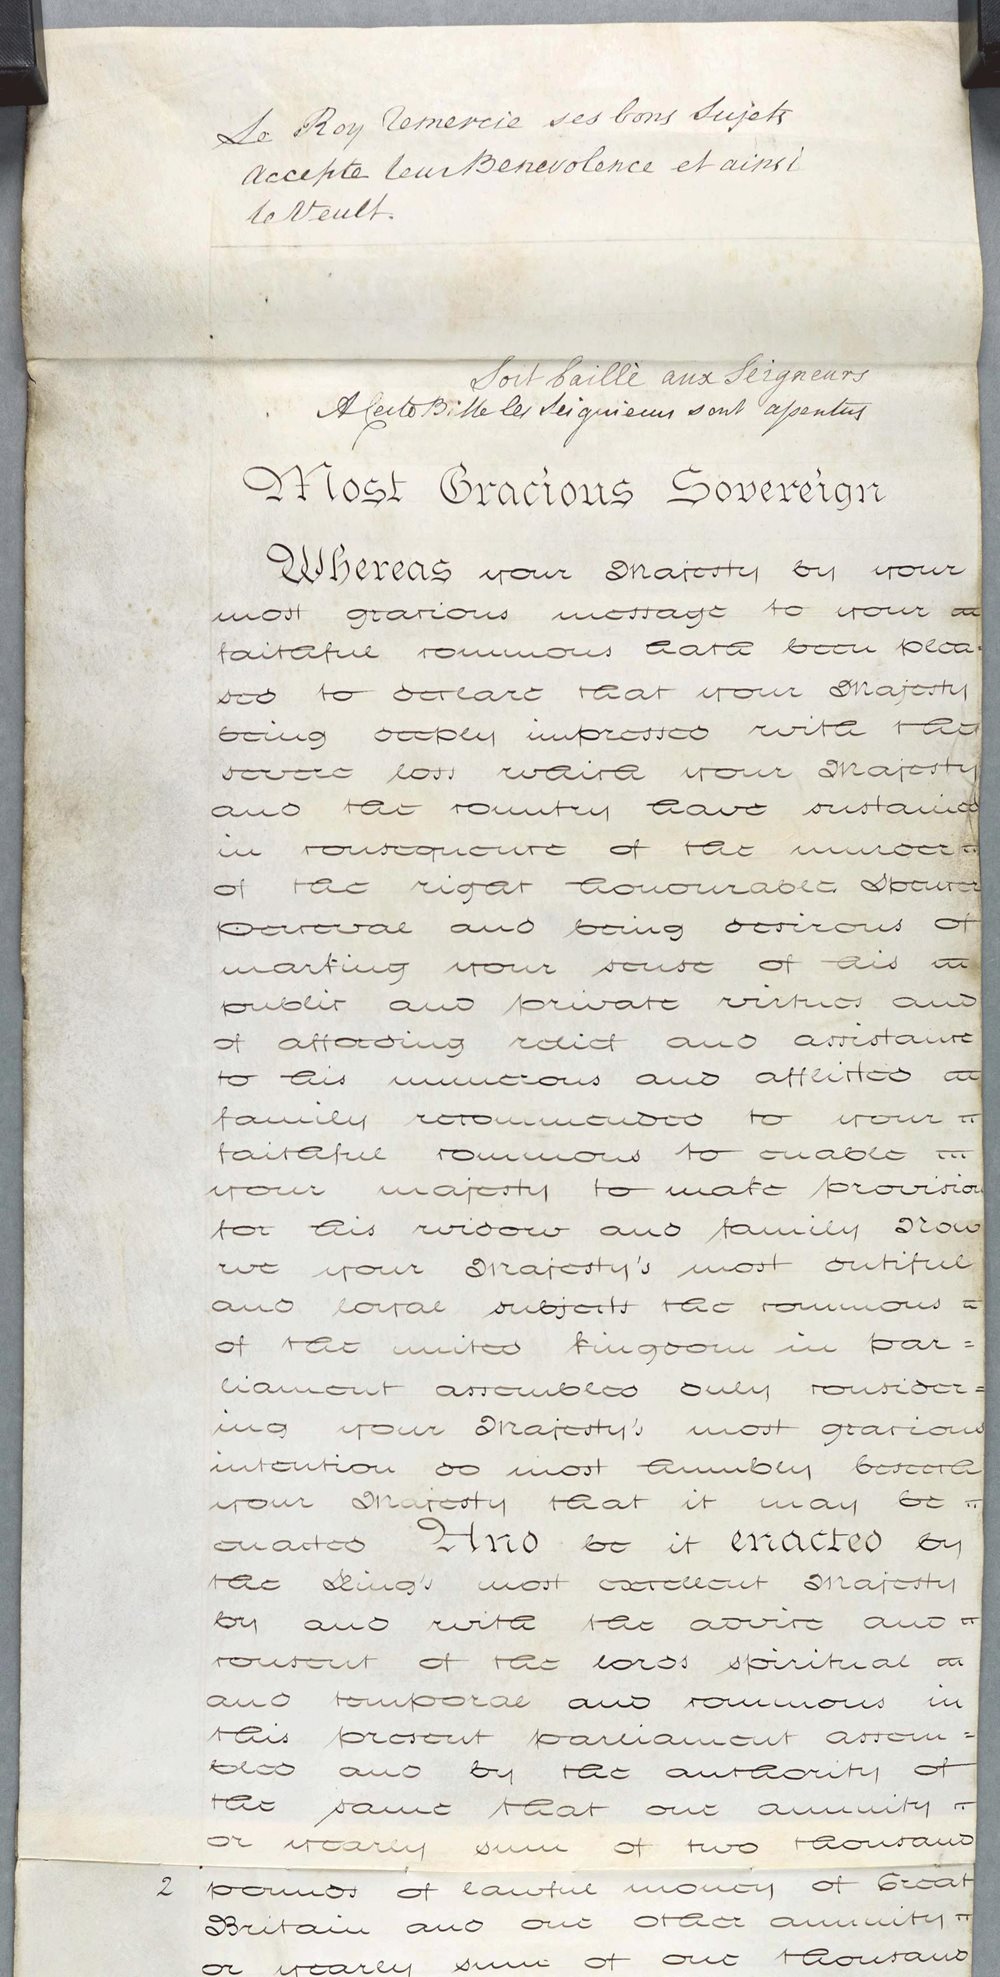 Le Roy Remercie ses bons Sujets
accepte leur Benevolence et ainsi
le Veult.
Soit baillè aux Seigneurs
A Cecte Bille les Seignieurs sont assentus
Most Gracious Sovereign
Whereas your Majesty by your
most gracious message to your
faithful commons hath been plea-
sed to declare that your Majesty
being deeply impressed with the
severe loss which your Majesty
and the country have sustained
in consequence of the murder
of the right honourable Spencer
Perceval and being desirous of
marking your sense of his
public and private virtues and
of affording relief and assistance
to his numerous and afflicted
family recommended to your
faithful commons to enable
your majesty to make provision
for his widow and family Now
we your Majesty's most dutiful
and loyal subjects the commons
of the united kingdom in par=
liament assembled duly consider=
ing your Majesty's most gracious
intention do most humbly beseech
your Majesty that it may be
enacted And be it enacted by
the King's most excellent Majesty
by and with the advice and
consent of the lords spiritual
and temporal and commons in
this present parliament assem=
bled and by the authority of
the same that one annuity
or yearly sum of two thousand
2 pounds of lawful money of Great
Britain and one other annuity
or yearly sum of one thousand